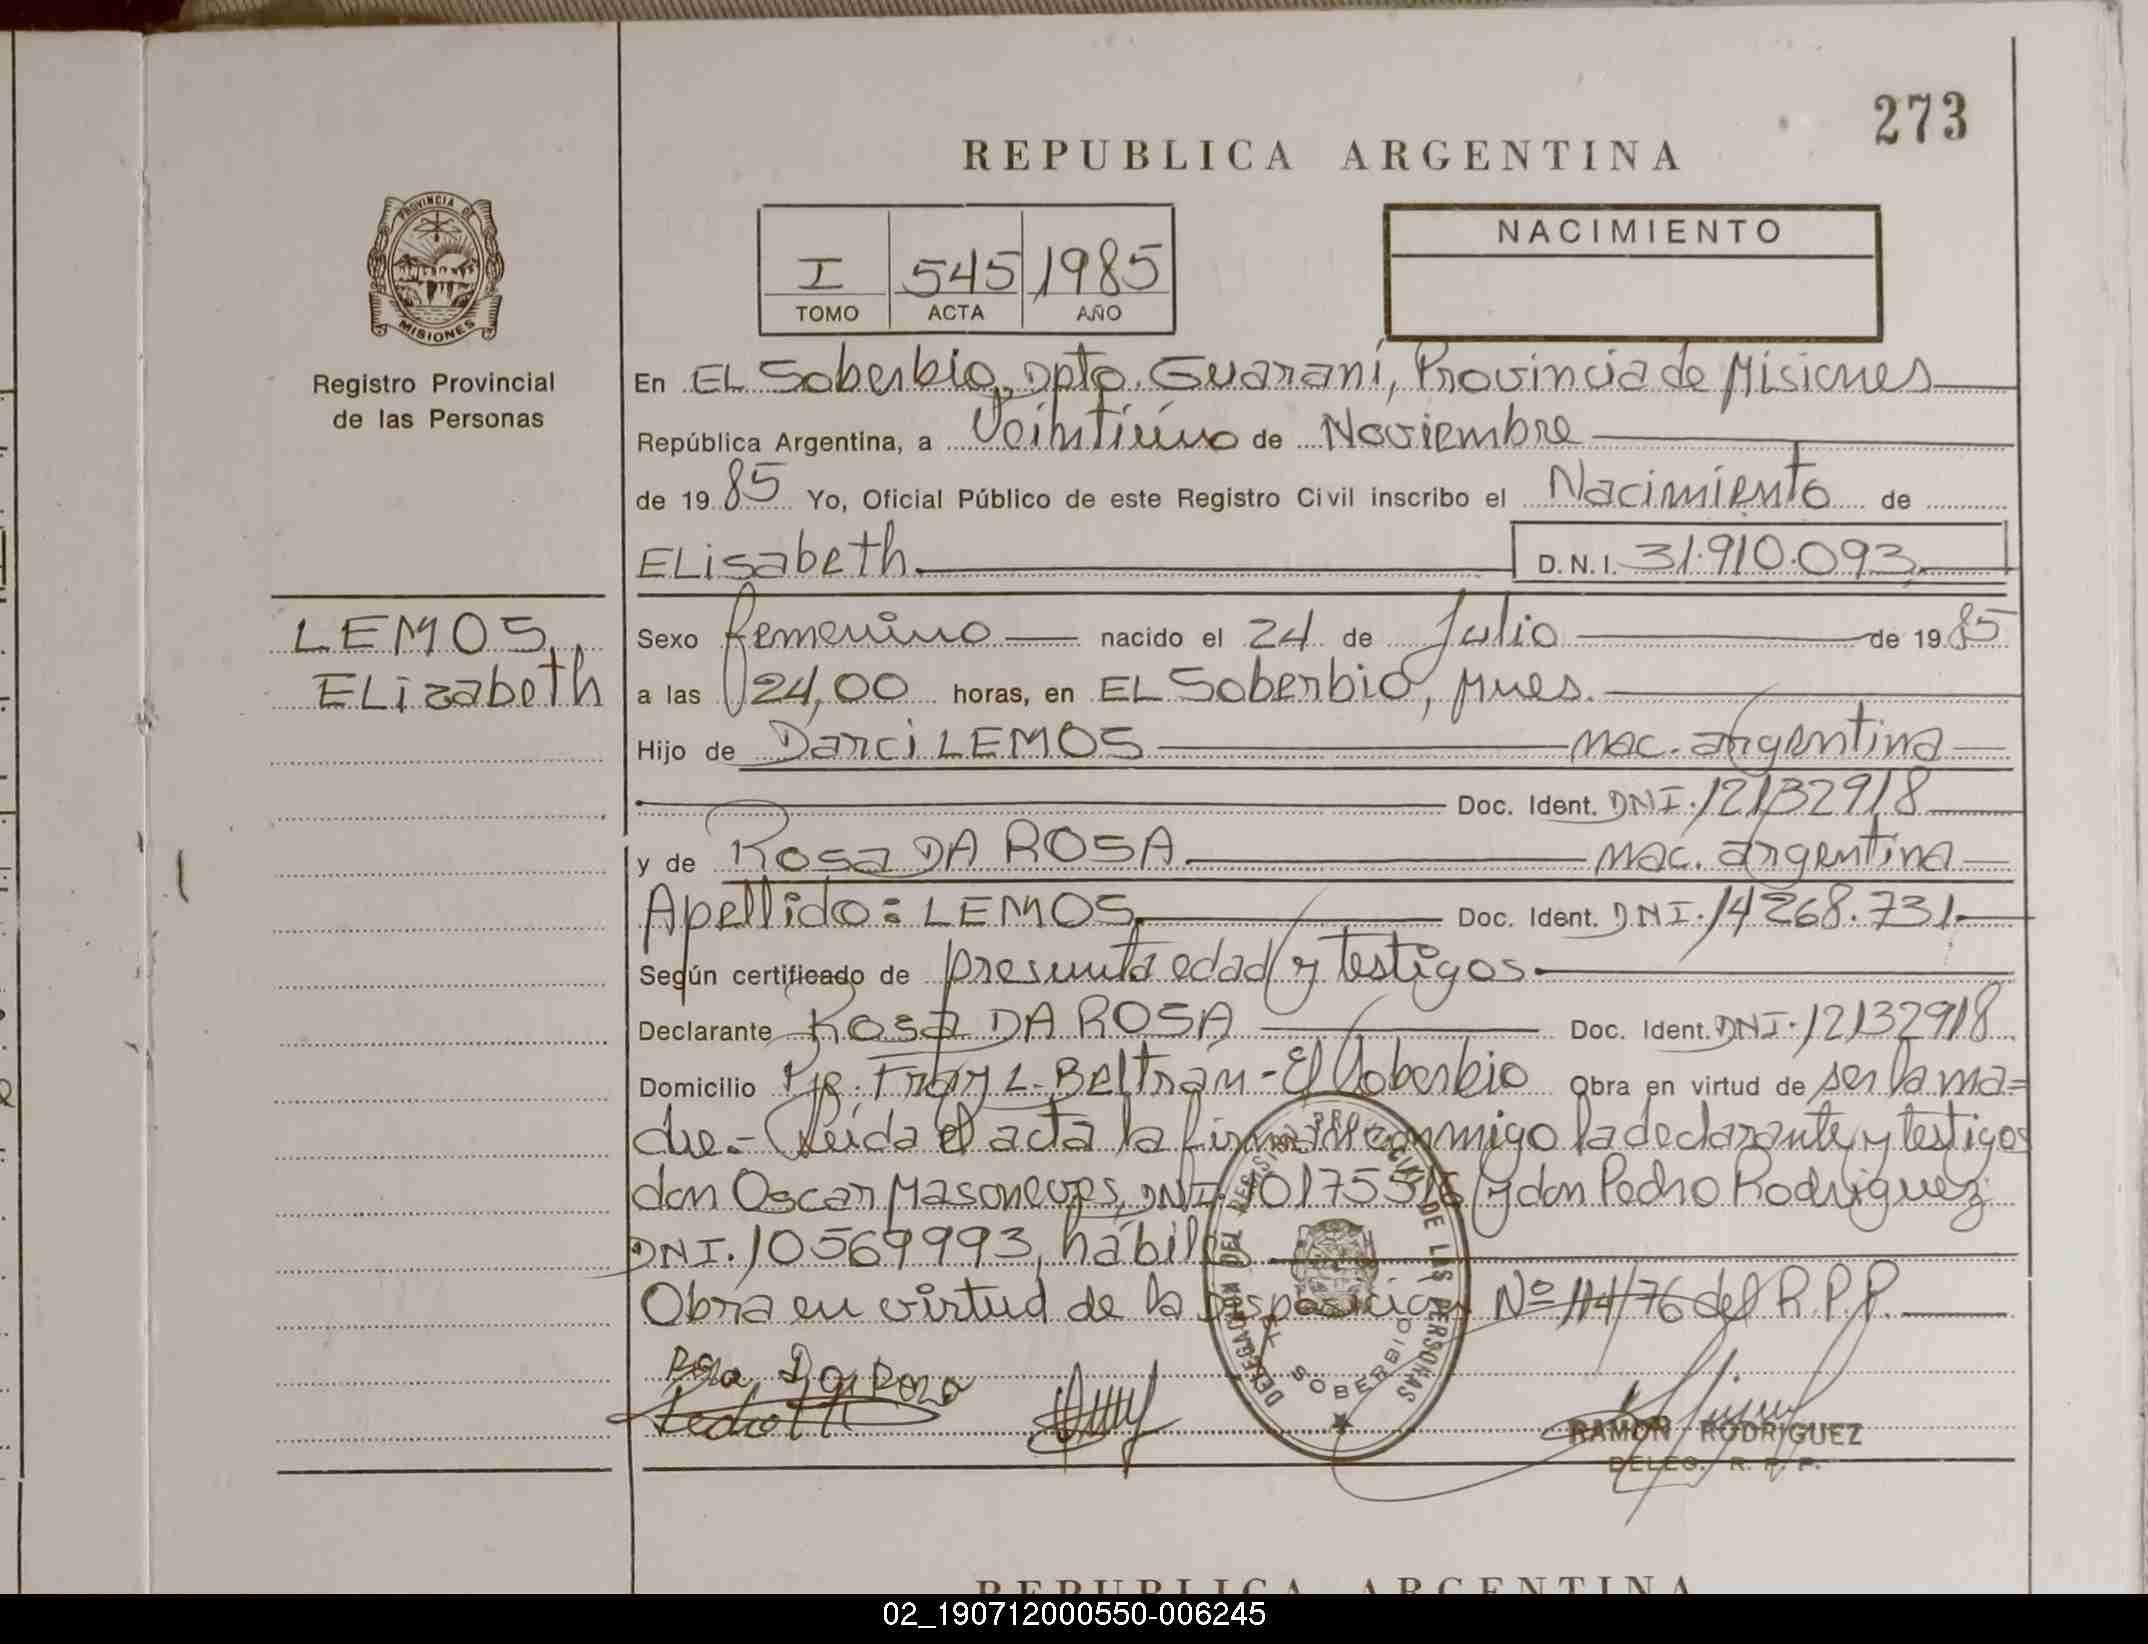 273
REPUBLICA ARGENTINA
PROVINCIA DE
MISIONES
Registro Provincial
de las Personas
I 545 1985
TOMO ACTA AÑO
NACIMIENTO
En EL Soberbio, Dpto. Guaraní, Provincia de Misiones
República Argentina, a Veintiúno de Noviembre
de 1985 Yo, Oficial Público de este Registro Civil inscribo el Nacimiento de
ELisabeth. D.N.I. 31.910.093,
LEMOS,
ELizabeth
Sexo femenino nacido el 24 de Julio de 1985
a las 24,00 horas, en EL Soberbio, Mnes.
Hijo de Darci LEMOS nac. argentina
Doc. Ident. DNI. 12132918
y de Rosa DA ROSA nac. argentina
Apellido: LEMOS. Doc. Ident. DNI. 14268.731.
Según certificado de presunta edad y testigos.
Declarante Rosa DA ROSA Doc. Ident. DNI. 12132918
Domicilio Pje. Fray L. Beltrám - El Soberbio Obra en virtud de ser la ma=
dre.- Leída el acta la firman conmigo la declarante y testigos
don Oscar DNI. y don Pedro Rodriguez
DNI. 10569993, hábiles.
Obra en virtud de la Disposicion Nº 114/76 del R.P.P.
Rosa Da Rosa
DELEGACION DEL REGISTRO PROVINCIAL DE LAS PERSONAS
EL SOBERBIO
RAMON RODRIGUEZ
DELEG. R. P. P.
REPUBLICA ARGENTINA
02_190712000550-006245